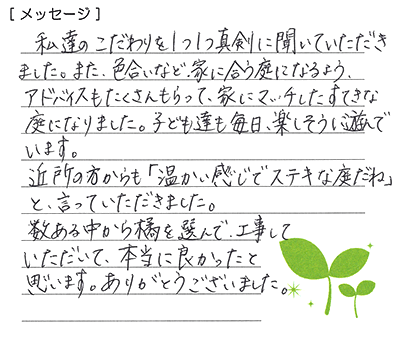 [メッセージ]
私達のこだわりを1つ1つ真剣に聞いていただき
ました。また、色合いなど、家に合う庭になるよう、
アドバイスもたくさんもらって、家にマッチしたすてきな
庭になりました。子ども達も毎日、楽しそうに遊んで
います。
近所の方からも「温かい感じでステキな庭だね」
と、言っていただきました。
数ある中から橘を選んで、工事して
いただいて、本当に良かったと
思います。ありがとうございました。